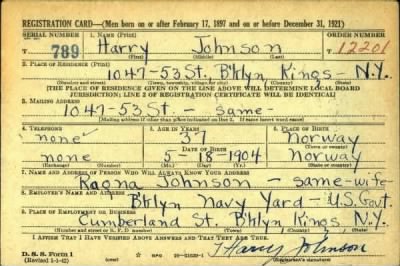 REGISTRATION CARD—(Men born on or after February 17, 1897 and on or before December 31, 1921)
SERIAL NUMBER 1. NAME (Print) ORDER NUMBER
789 Harry Johnson 12201
(First) (Middle) (Last)
2. PLACE OF RESIDENCE (Print)
1047-53 St., B'klyn Kings - N.Y.
(Number and street) (Town, township, village, or city) (County) (State)
[THE PLACE OF RESIDENCE GIVEN ON THE LINE ABOVE WILL DETERMINE LOCAL BOARD
JURISDICTION; LINE 2 OF REGISTRATION CERTIFICATE WILL BE IDENTICAL]
3. MAILING ADDRESS
1047-53 St. - same -
[Mailing address if other than place indicated on line 2. If same insert word same]
4. TELEPHONE 5. AGE IN YEARS 6. PLACE OF BIRTH
none 37 Norway
DATE OF BIRTH (Town or county)
none 5-18-1904 Norway
(Exchange) (Number) (Mo.) (Day) (Yr.) (State or country)
7. NAME AND ADDRESS OF PERSON WHO WILL ALWAYS KNOW YOUR ADDRESS
Ragna Johnson - same - wife
8. EMPLOYER'S NAME AND ADDRESS
B'klyn Navy Yard - U.S. Govt.
9. PLACE OF EMPLOYMENT OR BUSINESS
Cumberland St. B'klyn Kings, N.Y.
(Number and street or R. F. D. number) (Town) (County) (State)
I AFFIRM THAT I HAVE VERIFIED ABOVE ANSWERS AND THAT THEY ARE TRUE.
D. S. S. Form 1
(Revised 1-1-42) GPO 16-21630-1 Harry Johnson
(Registrant's signature)